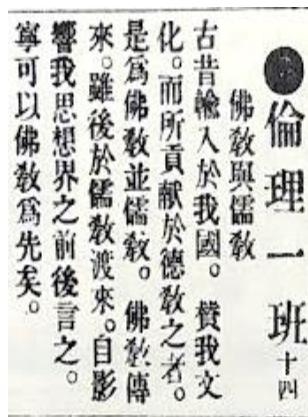 倫理一班十四
佛敎與儒敎
古昔輸入於我國。贊我文
化。而所貢献於德敎之者。
是爲佛敎並儒敎。佛敎傳
來。雖後於儒敎渡來。自影
響我思想界之前後言之。
寧可以佛敎爲先矣。